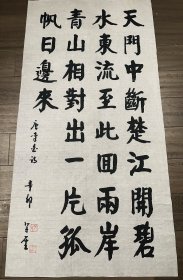 天門中斷楚江開碧
水東流至此回兩岸
青山相對出一片孤
帆日邊來
唐李白詩
辛卯